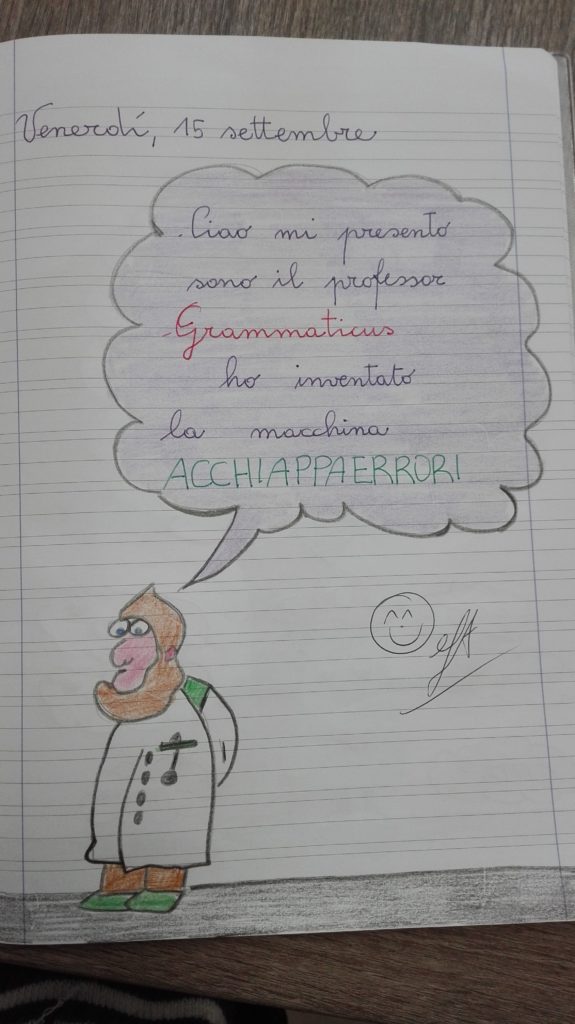 Venerdí, 15 settembre
Ciao mi presento
sono il professor
Grammaticus
ho inventato
la macchina
ACCHIAPPAERRORI